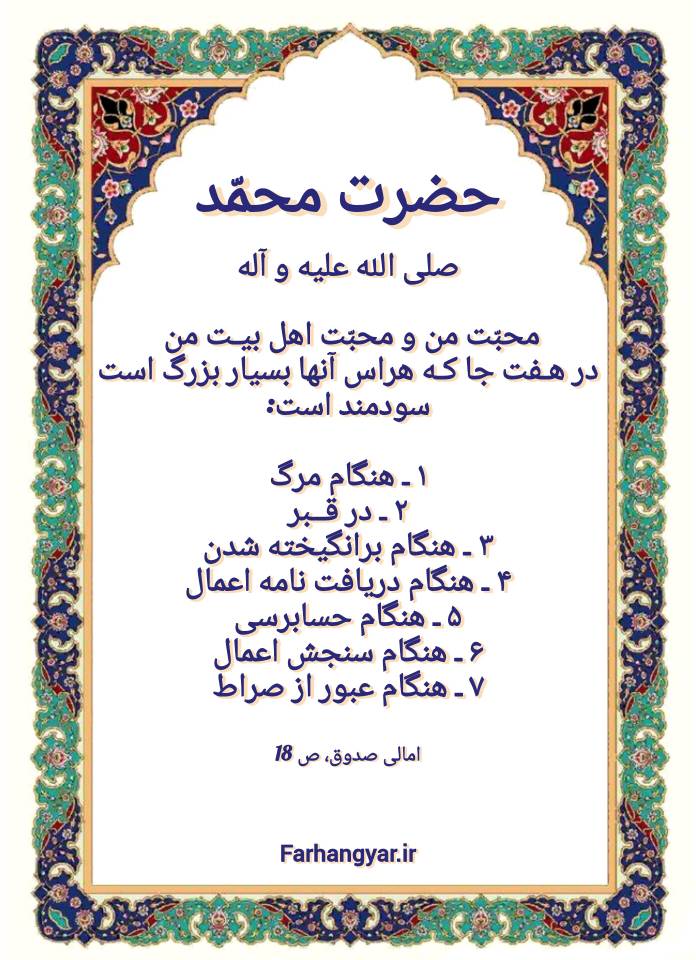 حضرت محمّد
صلی الله علیه و آله
محبّت من و محبّت اهل بیـت من
در هـفت جا کـه هراس آنها بسیار بزرگ است
سودمند است:
۱ ـ هنگام مرگ
۲ ـ در قــبر
۳ ـ هنگام برانگیخته شدن
۴ ـ هنگام دریافت نامه اعمال
۵ ـ هنگام حسابرسی
۶ ـ هنگام سنجش اعمال
۷ ـ هنگام عبور از صراط
امالی صدوق، ص 18
Farhangyar.ir